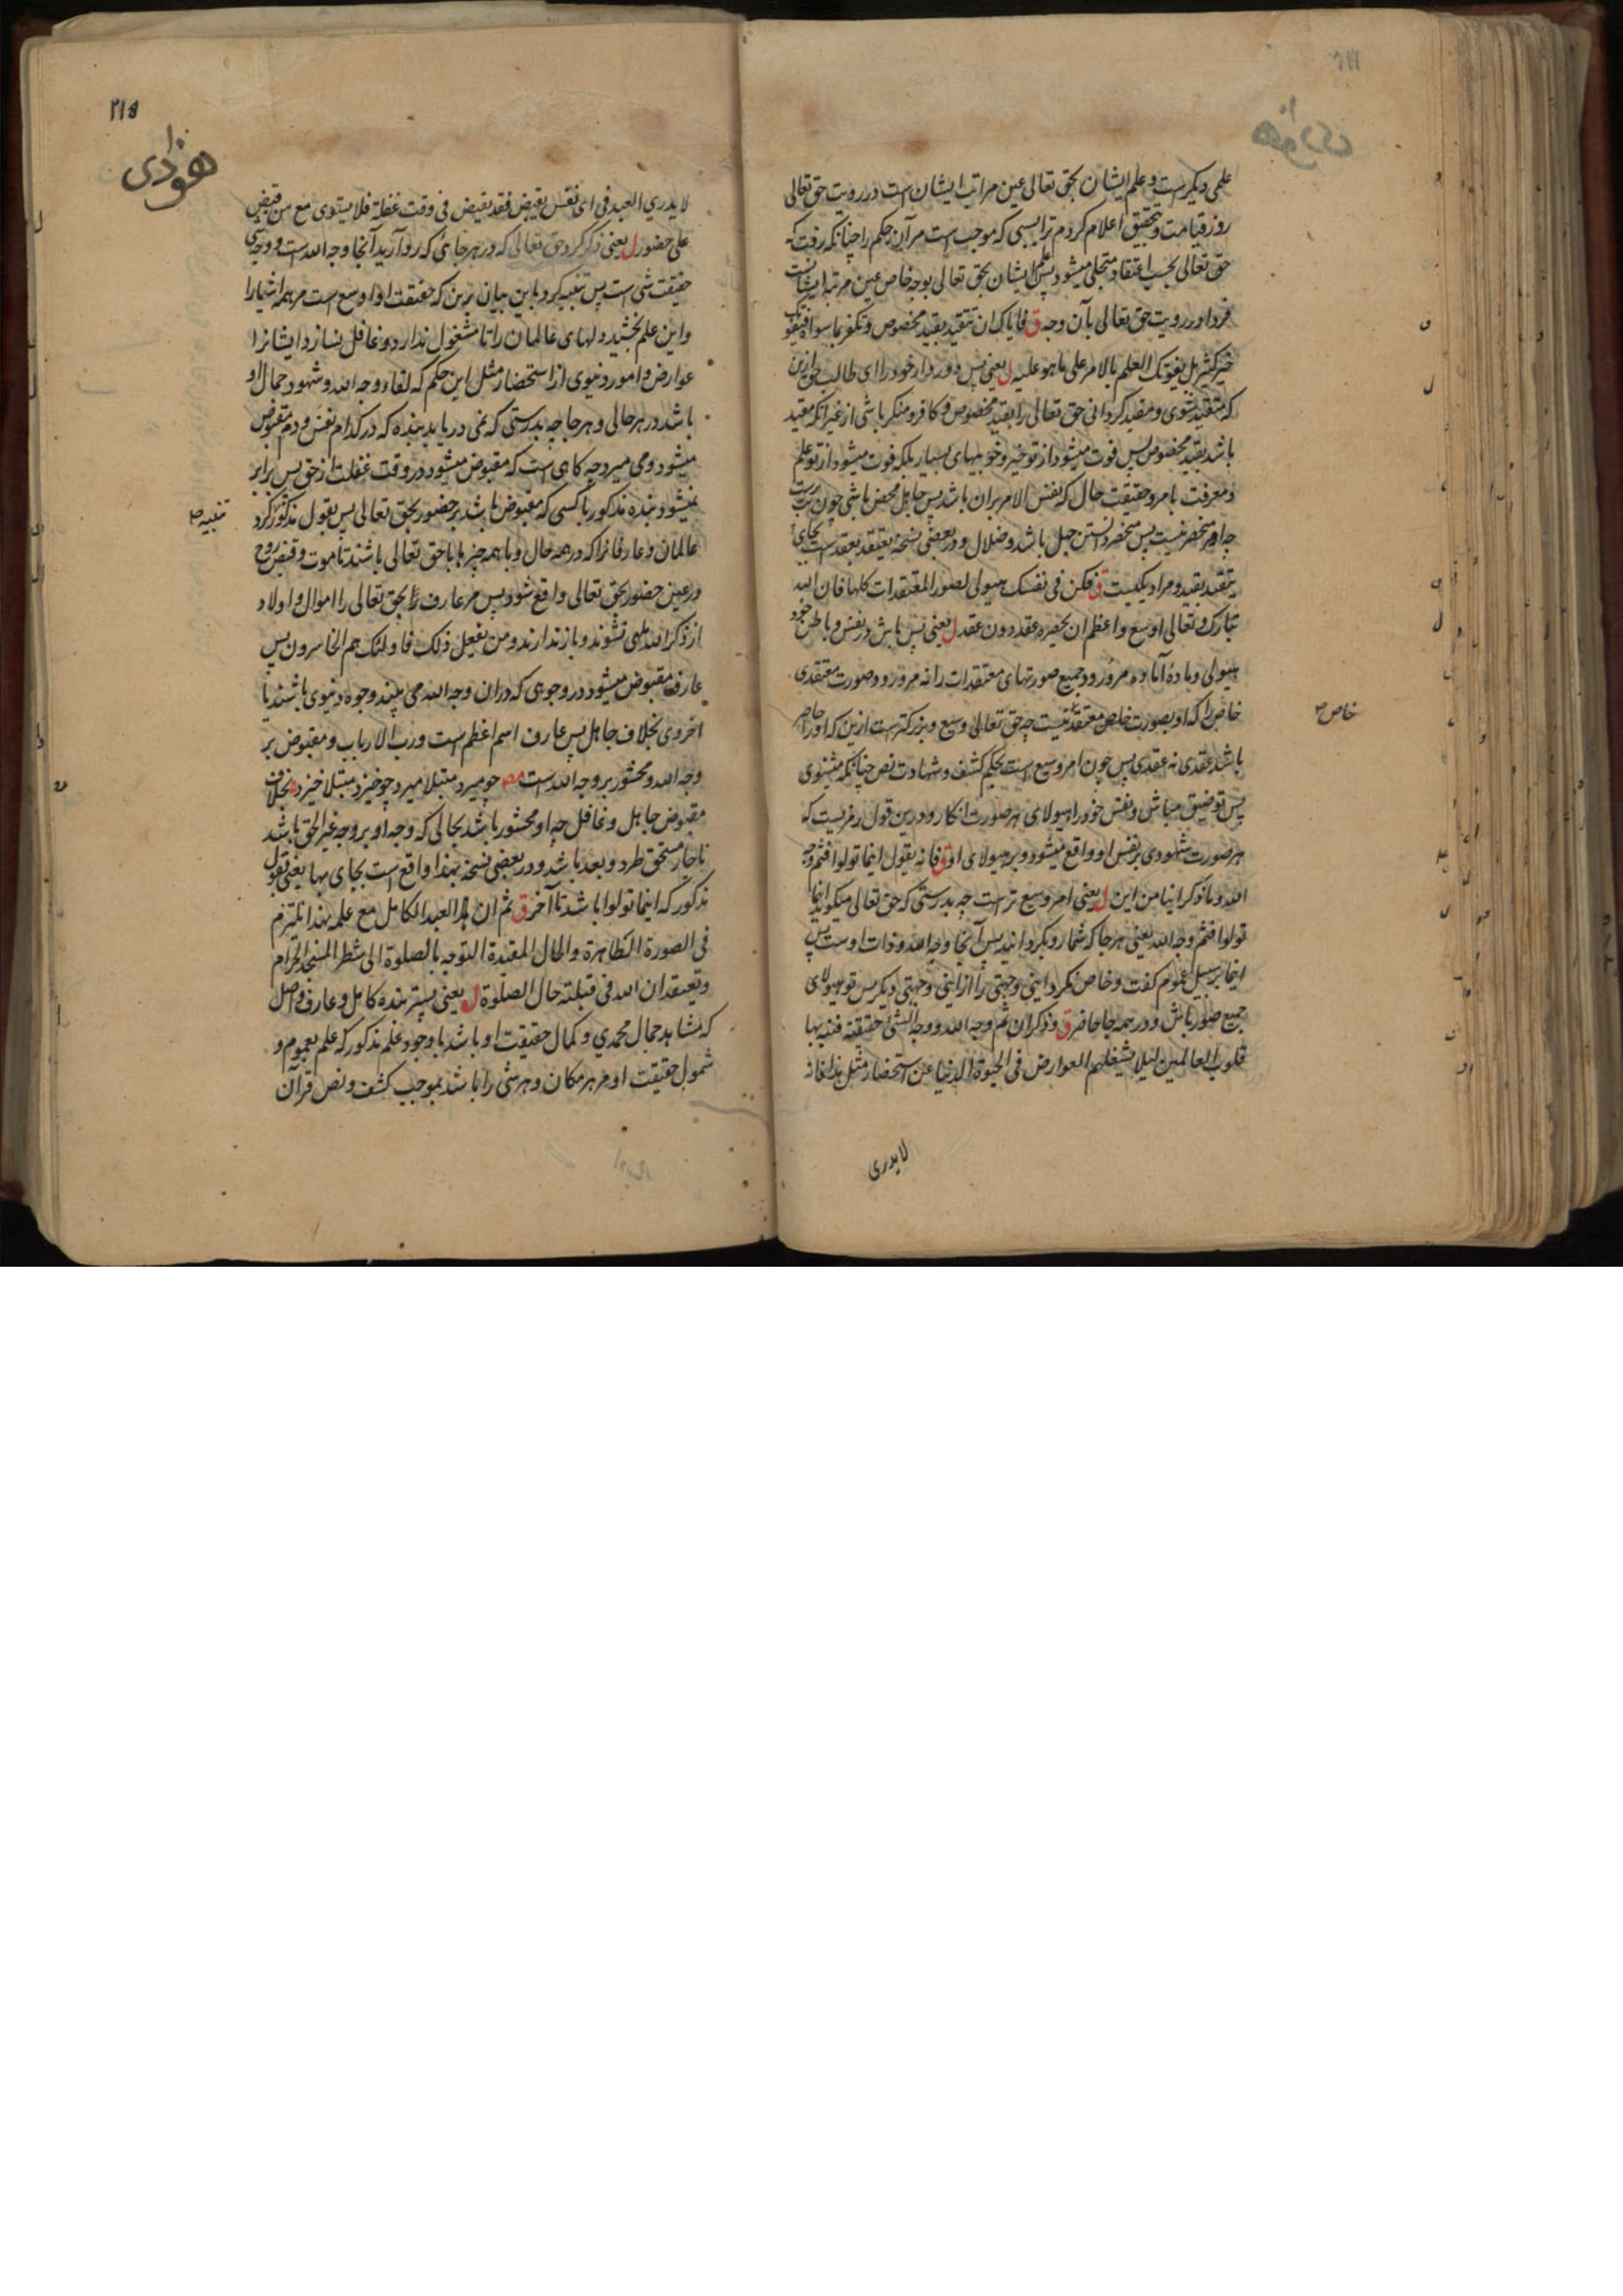 علمی دیگر است و علم ایشان بحق تعالی عین مراتب ایشان است در رویت حق تعالی
روز قیامت و بتحقیق اعلام کردم ترا بسببی که موجب است مر آن حکم را چنانکه رفت که
حق تعالی بحسب اعتقاد متجلی میشود پس علم ایشان بحق تعالی بوجه خاص عین مرتبه ایشانست
فردا در رویت حق تعالی بآن وجه ق فایاک ان تتقید بقید مخصوص و تکفر بما سواه فیفوتک
خیر کثیر بل یفوتک العلم بالامر علی ما هو علیه ل یعنی پس دور دار خود را ای طالب حق ازین
که متقید شوی و مقید کردانی حق تعالی را بقید مخصوص و کافر و منکر باشی از غیر آنکه مقید
باشد بقید مخصوص پس فوت میشود از تو خیر و خوبیهای بسیار بلکه فوت میشود از تو علم
و معرفت بامر و حقیقت حال که نفس الامر بران باشد پس جاهل محض باشی چون
چه امر منحصر نیست پس منحصر دانستن جهل باشد و ضلال و در بعضی نسخه یعتقد بعقد است بجای
یتقید بقید و مراد یکیست ق فکن فی نفسک هیولی لصور المعتقدات کلها فان الله
تبارک و تعالی اوسع و اعظم ان یحصره عقد دون عقد ل یعنی پس باش در نفس و باطن خود
هیولی و مادهٔ آماده مرور و جمیع صورتهای معتقدات را نه مرور و صورت معتقدی
خاص را که او بصورت خاص معتقد نیست چه حق تعالی وسیع و بزرکتر است ازین که او را حاصر
خاص صح
باشد عقدی نه عقدی پس چون امر وسیع است بحکم کشف و شهادت نص چنانکه مثنوی
پس تو ضیق مباش و نفس خود را هیولای هر صورت انکار و درین قول رمزیست که
هر صورت شهودی بر نفس او واقع میشود و بر هیولای او ق فانه یقول اینما تولوا فثم وجه
الله و ما ذکر اینا من این ل یعنی امر وسیع تر است چه بدرستی که حق تعالی میکوید اینما
تولوا فثم وجه الله یعنی هر جا که شما رو بکردانید پس آنجا وجه الله و ذات اوست پس
اینما بر سبیل عموم کفت و خاص نکرد اینی و جهتی را از اینی و جهتی دیکر پس تو هیولای
جمیع صور باش و در همه جا حاضر ق و ذکر ان ثم وجه الله و وجه الشئ حقیقته فنبه بها
قلوب العالمین لئلا یشغلهم العوارض فی الحیوة الدنیا عن استحضار مثل هذا فانه
لایدری
۲۱۵
هودی
لا یدری العبد فی ای نفس یقبض فقد یقبض فی وقت غفلة فلا یستوی مع من قبض
علی حضور ل یعنی ذکر کرد حق تعالی که در هر جائی که رو آرید آنجا وجه الله است و وجه شئ
حقیقت شئ است پس تنبیه کرد باین بیان برین که حقیقت او اوسع است مر همه اشیا را
و این علم بخشید دلهای عالمان را تا مشغول ندارد و غافل نسازد ایشانرا
عوارض و امور دنیوی از استحضار مثل این حکم که لقاء وجه الله و شهود جمال او
باشد در هر حالی و هر جا چه بدرستی که نمی دریابد بنده که در کدام نفس و دم مقبوض
میشود و می میرد چه کاهی است که مقبوض میشود در وقت غفلت از حق پس برابر
نمیشود بنده مذکور با کسی که مقبوض باشد بر حضور بحق تعالی پس بقول مذکور کرد
تنبیه صح
عالمان و عارفانرا که در همه حال و با همه چیزها با حق تعالی باشند تا موت و قبض روح
در عین حضور بحق تعالی واقع شود پس مر عارف را بحق تعالی را اموال و اولاد
از ذکر الله ملهی نشوند و باز ندارند و من یفعل ذلک فاولئک هم الخاسرون پس
عارف مقبوض میشود در وجوهی که دران وجه الله می بیند وجوه دنیوی باشند یا
اخروی بخلاف جاهل پس عارف اسم اعظم است و رب الارباب و مقبوض بر
وجه الله و محشور بر وجه الله است مصر چو میرد مبتلا میرد چو خیزد مبتلا خیزد بخلاف
مقبوض جاهل و غافل چه او محشور باشد بحالی که وجه او بر وجه غیر الحق باشد
ناچار مستحق طرد و بعد باشد و در بعضی نسخه بهذا واقع است بجای بها یعنی بقول
مذکور که اینما تولوا باشد تا آخر ق ثم ان العبد الکامل مع علمه بهذا یلتزم
فی الصورة الظاهرة و الحال المقیدة التوجه بالصلوة الی شطر المسجد الحرام
و یعتقد ان الله فی قبلته حال الصلوة ل یعنی پستر بنده کامل و عارف واصل
که مشاهد جمال محمدی و کمال حقیقت او باشد با وجود علم مذکور که علم بعموم و
شمول حقیقت او مر هر مکان و هر شئ را باشد بموجب کشف و نص قرآن